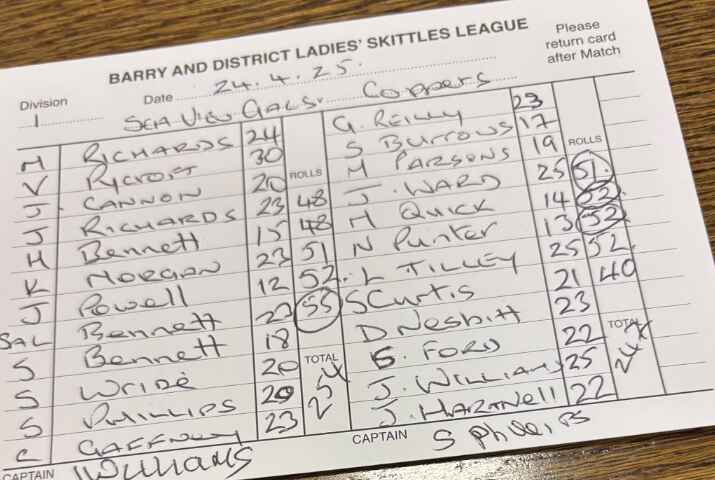 BARRY AND DISTRICT LADIES' SKITTLES LEAGUE
Please return card after Match
Division 1 Date 24.4.25.
SEA VIEW GALS. Coppers
M RICHARDS 24 G. REILLY 23
V RYCROFT 30 S BURROWS 17
J. CANNON 20 ROLLS M PARSONS 19 ROLLS
J RICHARDS 23 48 J. WARD 25 51.
H Bennett 15 48 M QUICK 14 53.
K MORGAN 23 51 N Punter 13 52
J Powell 12 52. L TILLEY 25 52
SAL Bennett 55 S Curtis 21 40
S Bennett 18 D Nesbitt 23
S WRIDE 20 TOTAL G. FORD 22 TOTAL
S PHILLIPS 20 J. WILLIAMS 25
C GAFFNEY 23 J. HARTNELL 22
CAPTAIN Williams CAPTAIN S Phillips